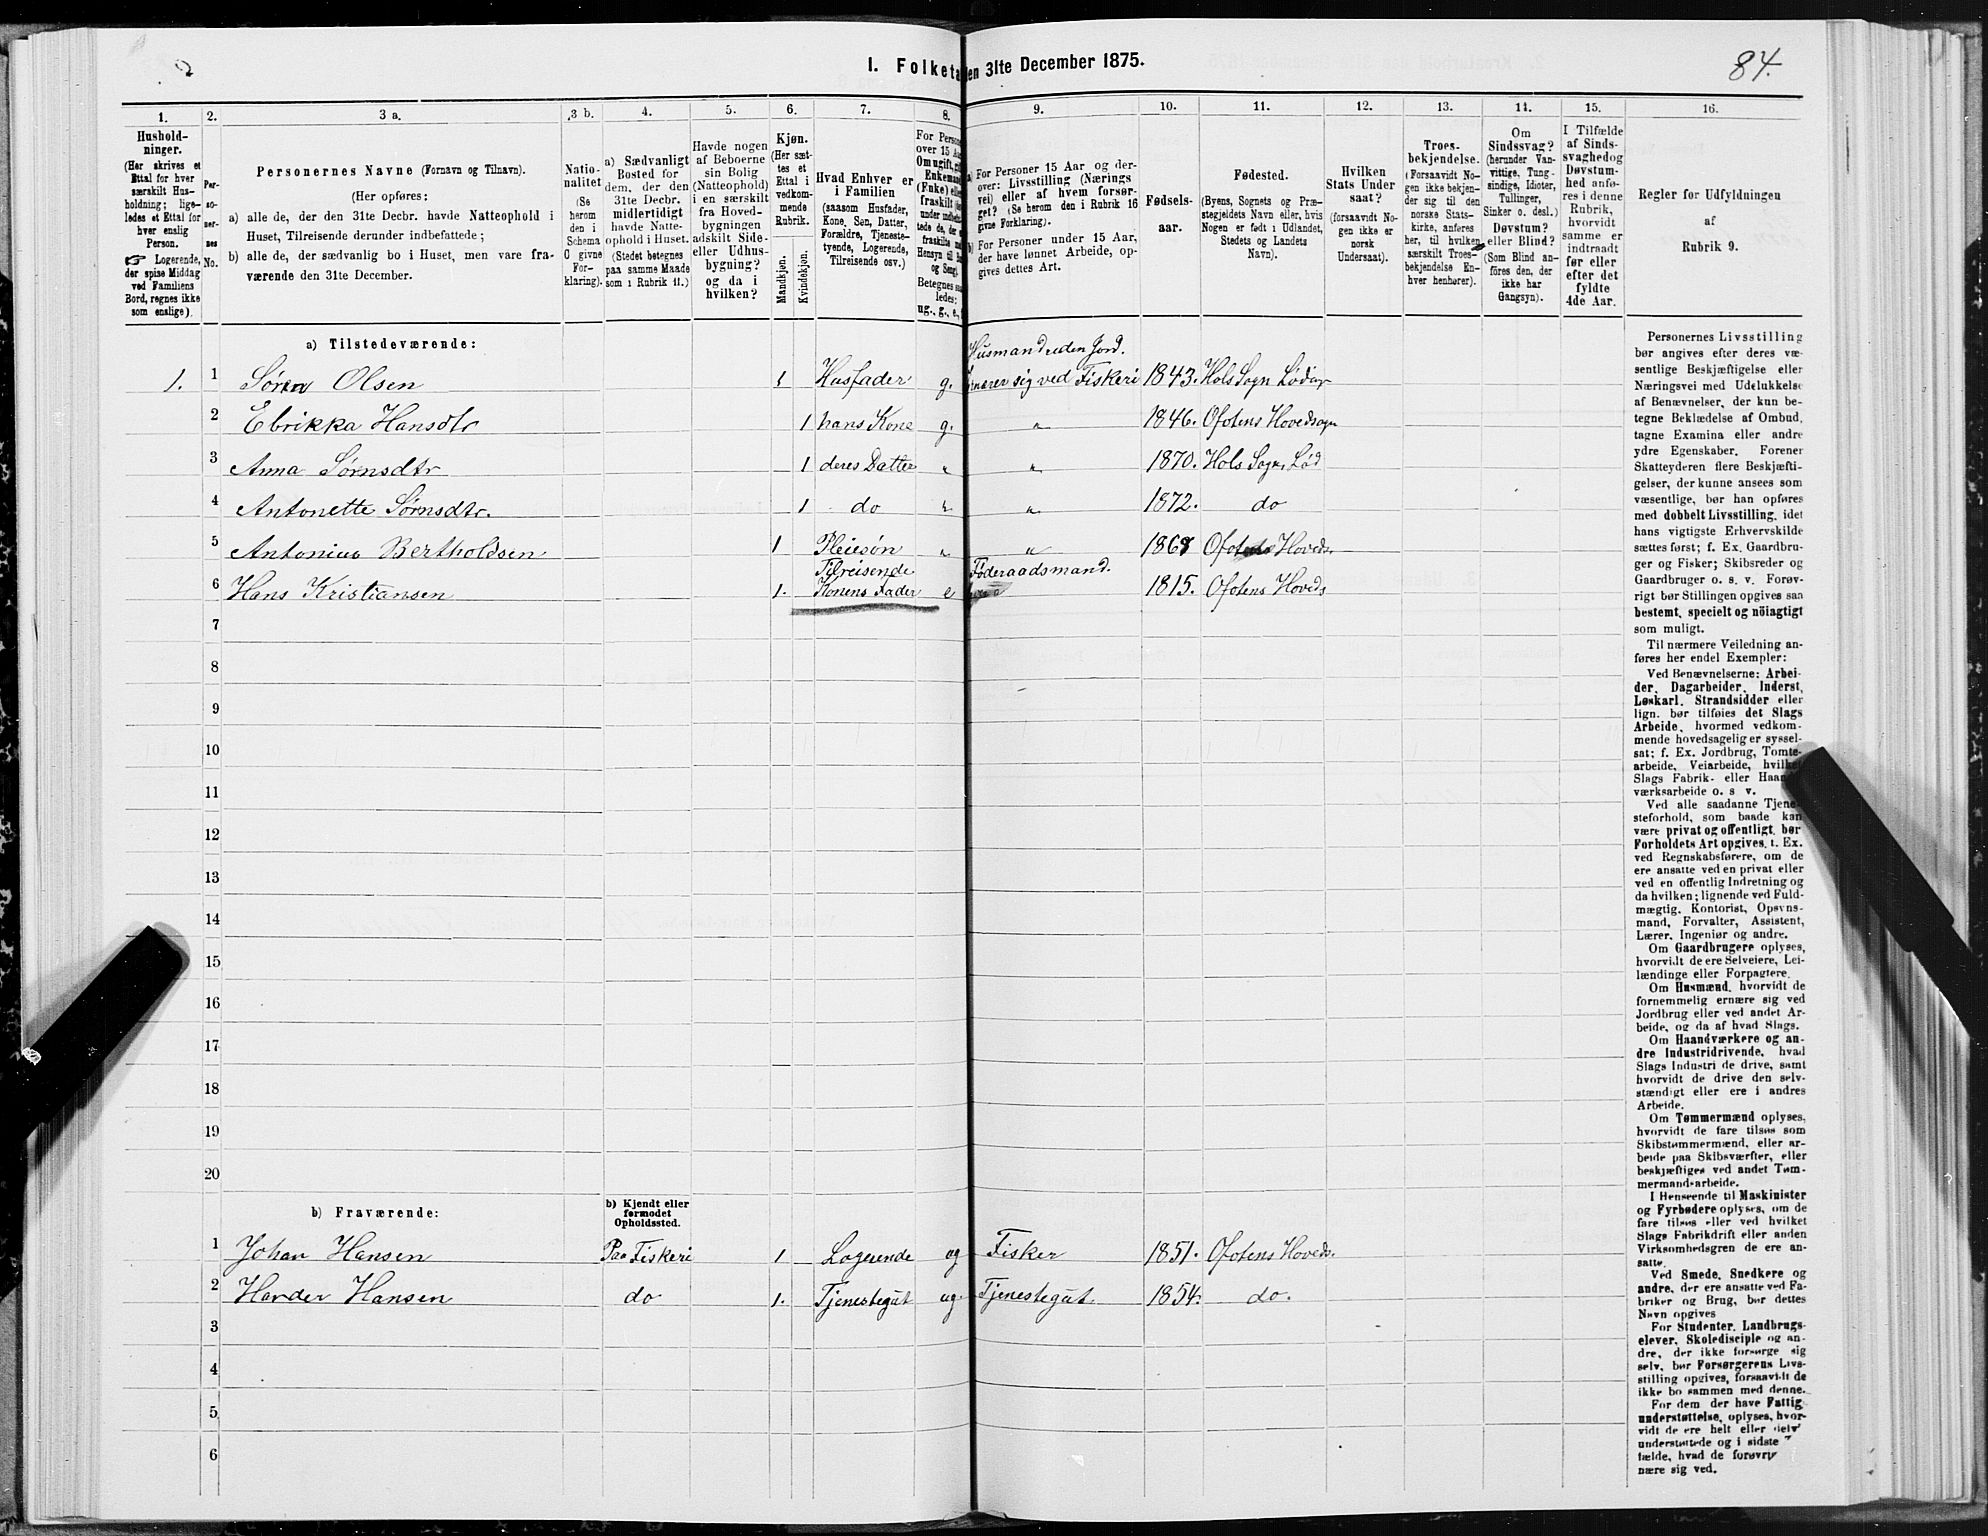 1. Folketa en 31te December 1875.
84.
1.
2.
3 a.
3 b.
4.
5.
6.
7.
8.
9.
10.
11.
12.
13.
14.
15.
16.
Hushold-
ninger.
(Her skrives et
Ettal for hver
særskilt Hus-
holdning; lige-
ledes et Ettal for
hver enslig
Person.
☞ Logerende,
der spise Middag
ved Familiens
Bord, regnes ikke
som enslige).
Per-
so-
ner-
nes
No.
Personernes Navne (Fornavn og Tilnavn).
(Her opføres:
a) alle de, der den 31te Decbr. havde Natteophold i
Huset, Tilreisende derunder indbefattede;
b) alle de, der sædvanlig bo i Huset, men vare fra-
værende den 31te December.
Natio-
nalitet
(Se
herom
den i
Schema
O givne
For-
klaring).
a) Sædvanligt
Bosted for
dem, der den
31te Decbr.
midlertidigt
havde Natte-
ophold i Huset.
(Stedet betegnes
paa samme Maade
som i Rubrik 11.)
Havde nogen
af Beboerne
sin Bolig
(Natteophold)
i en særskilt
fra Hoved-
bygningen
adskilt Side-
eller Udhus-
bygning?
og da i
hvilken?
Kjøn.
(Her sæt-
tes et
Ettal i
vedkom-
mende
Rubrik.
Mandkjøn.
Kvindekjøn.
Hvad Enhver er
i Familien
(saasom Husfader,
Kone, Søn, Datter,
Forældre, Tjeneste-
tyende, Logerende,
Tilreisende osv.)
For Person
over 15 Aa
Om ugift, gif
Enkeman
(Enke) elle
fraskilt
under indbe
tede de,
fraskilte
Hensyn til
og Seng).
Betegnes saa
ledes:
ug., g., e.,
a) For Personer 15 Aar og der-
over: Livsstilling (Nærings
vei) eller af hvem forsør-
get? (Se herom den i Rubrik 16
givne Forklaring).
b) For Personer under 15 Aar,
der have lønnet Arbeide, op-
gives dettes Art.
Fødsels-
aar.
Fødested.
(Byens, Sognets og Præ-
stegjeldets Navn eller, hvis
Nogen er født i Udlandet,
Stedets og Landets
Navn).
Hvilken
Stats Under
saat?
(forsaavidt No-
gen ikke er
norsk
Undersaat).
Troes-
bekjendelse.
(Forsaavidt No-
gen ikke bekjen-
der sig til den
norske Stats-
kirke, anføres
her, til hvilken
særskilt Troes-
bekjendelse En-
hver henhører).
Om
Sindssvag?
(herunder Van-
vittige, Tung-
sindige, Idioter,
Tullinger,
Sinker o. desl.)
Døvstum?
eller Blind?
(Som Blind an-
føres den, der
ikke har
Gangsyn).
I Tilfælde
af Sinds-
svaghed og
Døvstum-
hed anfø-
res i denne
Rubrik,
hvorvidt
samme er
indtraadt
før eller
efter det
fyldte
4de Aar.
Regler for Udfyldningen
af
Rubrik 9.
a) Tilstedeværende:
Husmand uden Jord.
1. 1 Søren Olsen 1 Husfader g. nærer sig ved Fiskeri 1843. Hols Sogn Lødin
2 Ebrikka Hansdtr 1 hans Kone g. " 1846. Ofotens Hovedsogn
3 Anna Sørnsdtr 1 deres Datter " " 1870. Hols Sogn, Lød
4 Antonette Sørnsdtr. 1 do " " 1872. do
5 Antonius Bertholdsen 1 Pleiesøn " " 1868 Ofotens Hoveds.
Tilreisende Føderaadsmand.
6 Hans Kristiansen 1. Konens Fader e 1815. Ofotens Hoveds
7
8
9
10
11
12
13
14
15
16
17
18
19
20
b) Fraværende:
b) Kjendt eller
formodet
Opholdssted.
1 Johan Hansen Paa Fiskeri 1. Logerende ug Fisker 1851. Ofotens Hoveds.
2 Harder Hansen do 1. Tjenestegut ug. Tjenestegut 1854. do.
3
4
5
6
Personernes Livsstilling
bør angives efter deres væ-
sentlige Beskjæftigelse eller
Næringsvei med Udelukkelse
af Benævnelser, der kun be-
tegne Beklædelse af Ombud,
tagne Examina eller andre
ydre Egenskaber. Forener
Skatteyderen flere Beskjæfti-
gelser, der kunne ansees som
væsentlige, bør han opføres
med dobbelt Livsstilling, idet
hans vigtigste Erhvervskilde
sættes først; f. Ex. Gaardbru-
ger og Fisker; Skibsreder og
Gaardbruger o. s. v. Forøv-
rigt bør Stillingen opgives saa
bestemt, specielt og nöiagtigt
som muligt.
Til nærmere Veiledning an-
føres her endel Exempler:
Ved Benævnelserne: Arbei-
der, Dagarbeider, Inderst,
Løskarl, Strandsidder eller
lign. bør tilføies det Slags
Arbeide, hvormed vedkom-
mende hovedsagelig er syssel-
sat; f. Ex. Jordbrug, Tomte-
arbeide, Veiarbeide, hvilket
Slags Fabrik- eller Haand-
værksarbeide o. s v.
Ved alle saadanne Tjene-
steforhold, som baade kan
være privat og offentligt, bør
Forholdets Art opgives, t. Ex.
ved Regnskabsførere, om de
ere ansatte ved en privat eller
ved en offentlig Indretning og
da hvilken; lignende ved Fuld-
mægtig, Kontorist, Opsyns-
mand, Forvalter, Assistent,
Lærer, Ingeniør og andre.
Om Gaardbrugere oplyses,
hvorvidt de ere Selveiere, Lei-
lændinge eller Forpagtere.
Om Husmænd, hvorvidt de
fornemmelig ernære sig ved
Jordbrug eller ved andet Ar-
beide, og da af hvad Slags.
Om Haandværkere og an-
dre Industridrivende, hvad
Slags Industri de drive, samt
hvorvidt de drive den selv-
stændigt eller ere i andres
Arbeide.
Om Tømmermænd oplyses,
hvorvidt de fare tilsøs som
Skibstømmermænd, eller ar-
beide paa Skibsværfter, eller
beskjæftiges ved andet Tøm-
mermandsarbeide.
I Henseende til Maskinister
og Fyrbødere oplyses, om de
fare tilsøs eller ved hvilket
Slags Fabrikdrift eller anden
Virksomhedsgren de ere an-
satte.
Ved Smede, Snedkere og
andre, der ere ansatte ved Fa-
briker og Brug, bør dettes
Navn opgives
For Studenter, Landbrugs-
elever, Skoledisciple og an-
dre, der ikke forsørge sig
selv, bør Forsørgerens Livs-
stilling opgives, forsaavidt de
ikke bo sammen med denne.
For dem der have Fattig
understøttelse, oplyses, hvor-
vidt de ere helt eller delv
understøttede og i sidste
fælde, hvad de forøvr
nære sig ved.